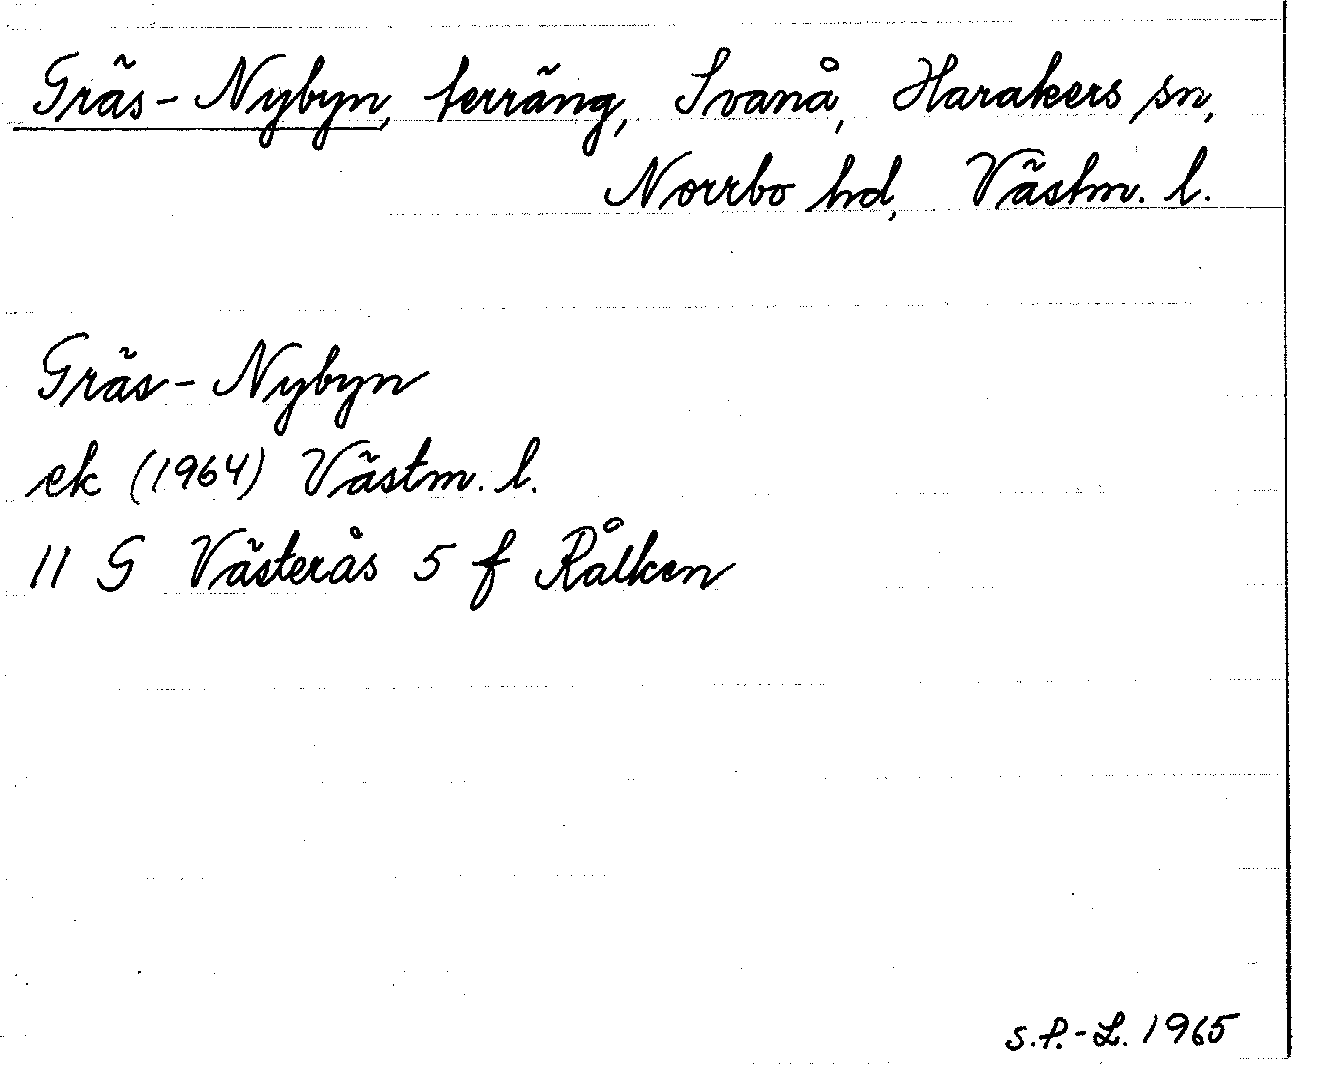 Gräs-Nybyn, terräng, Svanå, Harakers sn,
Norrbo hd, Västm. l.
Gräs-Nybyn
ek (1964) Västm. l.
11 G Västerås 5 f Rålken
S.P.-L. 1965